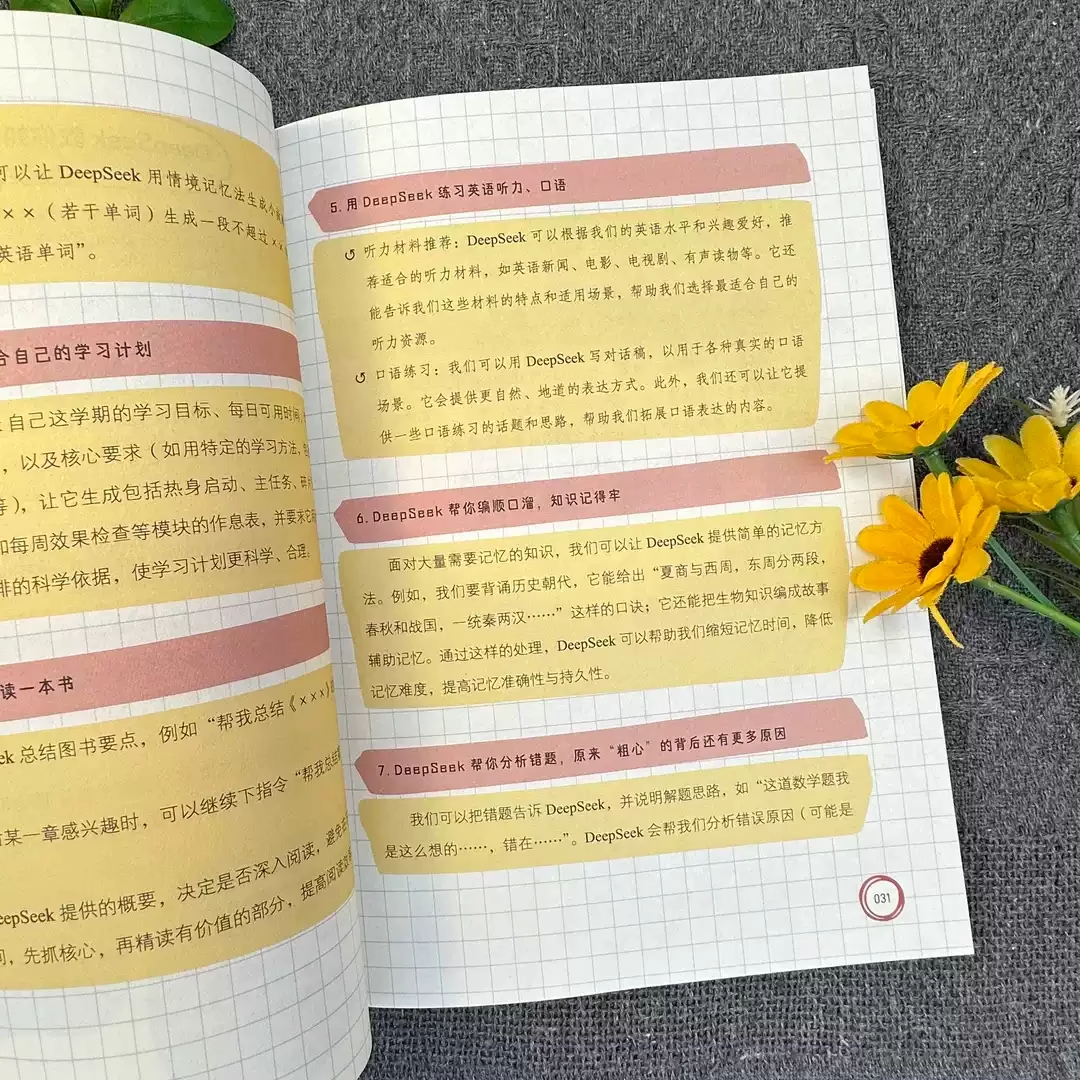 可以让 DeepSeek 用情境记忆法生成
×××（若干单词）生成一段不超过××
英语单词”。
合自己的学习计划
自己这学期的学习目标、每日可用时间
，以及核心要求（如用特定的学习方法，
等），让它生成包括热身启动、主任务、
和每周效果检查等模块的作息表，并要求
排的科学依据，使学习计划更科学、合理。
读一本书
ek 总结图书要点，例如“帮我总结《×××》
某一章感兴趣时，可以继续下指令“帮我总结
eepSeek 提供的概要，决定是否深入阅读，避免
间，先抓核心，再精读有价值的部分，提高阅读
5. 用 DeepSeek 练习英语听力、口语
听力材料推荐：DeepSeek 可以根据我们的英语水平和兴趣爱好，推
荐适合的听力材料，如英语新闻、电影、电视剧、有声读物等。它还
能告诉我们这些材料的特点和适用场景，帮助我们选择最适合自己的
听力资源。
口语练习：我们可以用 DeepSeek 写对话稿，以用于各种真实的口语
场景。它会提供更自然、地道的表达方式。此外，我们还可以让它提
供一些口语练习的话题和思路，帮助我们拓展口语表达的内容。
6. DeepSeek 帮你编顺口溜，知识记得牢
面对大量需要记忆的知识，我们可以让 DeepSeek 提供简单的记忆方
法。例如，我们要背诵历史朝代，它能给出“夏商与西周，东周分两段，
春秋和战国，一统秦两汉……”这样的口诀；它还能把生物知识编成故事
辅助记忆。通过这样的处理，DeepSeek 可以帮助我们缩短记忆时间，降低
记忆难度，提高记忆准确性与持久性。
7. DeepSeek 帮你分析错题，原来“粗心”的背后还有更多原因
我们可以把错题告诉 DeepSeek，并说明解题思路，如“这道数学题我
是这么想的……，错在……”。DeepSeek 会帮我们分析错误原因（可能是
031